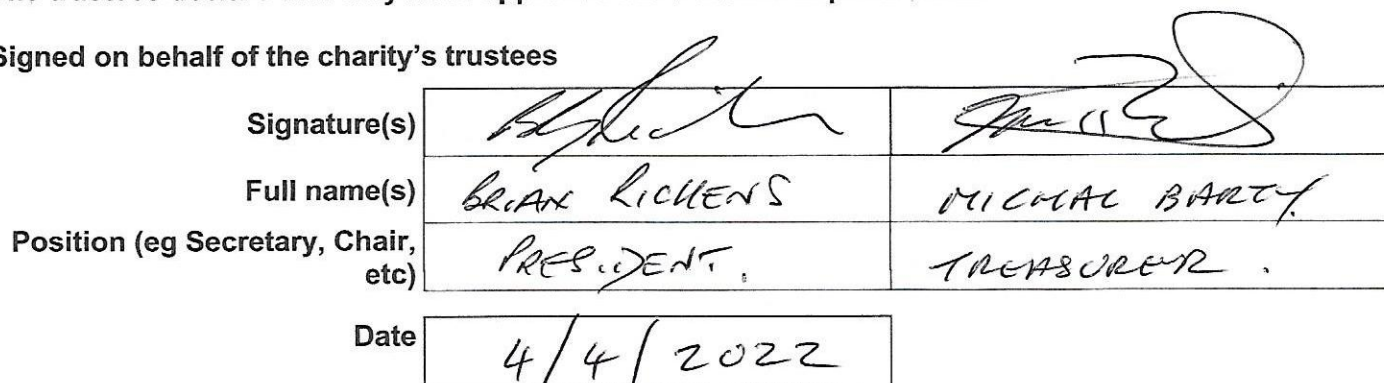 Signed on behalf of the charity's trustees
Signature(s)
Full name(s) BRIAN RICKENS MICHAL BARTY.
Position (eg Secretary, Chair, etc) PRESIDENT. TREASURER.
Date 4/4/2022